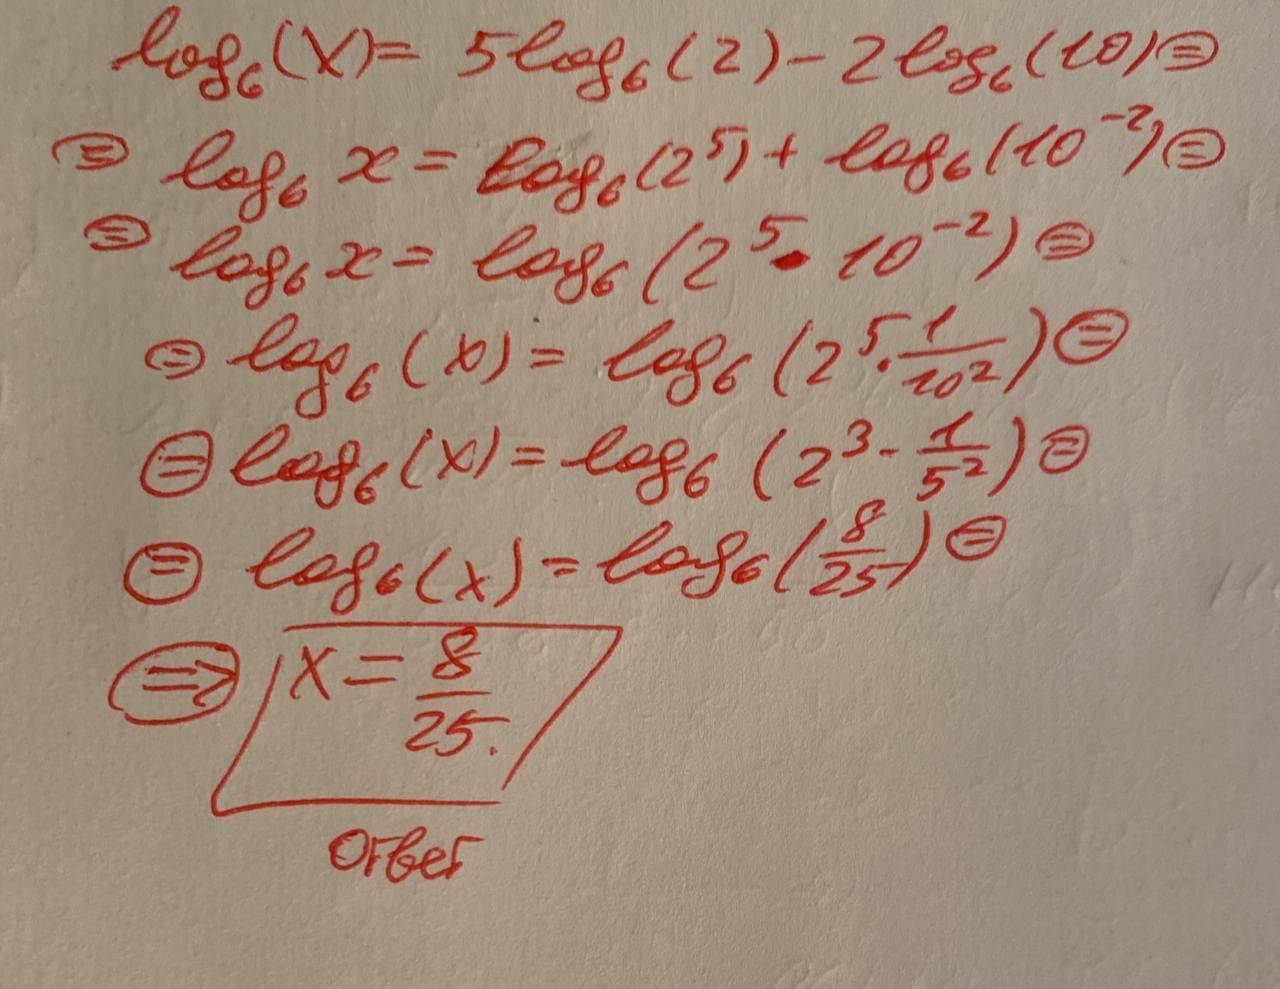 log₆(x) = 5log₆(2) - 2log₆(10) ⊜
⊜ log₆ x = log₆(2⁵) + log₆(10⁻²) ⊜
⊜ log₆ x = log₆(2⁵ · 10⁻²) ⊜
⊜ log₆(x) = log₆(2⁵ · 1/10²) ⊜
⊜ log₆(x) = log₆(2³ · 1/5²) ⊜
⊜ log₆(x) = log₆(8/25) ⊜
⇒ x = 8/25.
Ответ